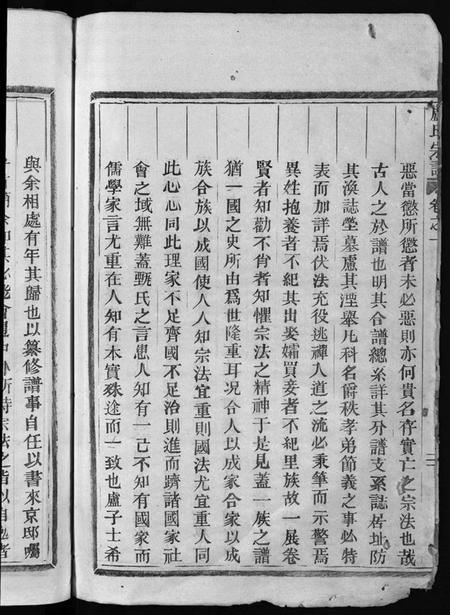 盧氏宗譜 卷之一
惡當懲所懲者未必惡則亦何貴名存實亡之宗法也哉
古人之於譜也明其合譜總系詳其分譜支系誌居址防
其渙誌塋墓慮其湮舉凡科名爵秩孝弟節義之事必特
表而加詳焉伏法充役逃禪人道之流必秉筆而示警焉
異姓抱養者不紀其出娶孀買妾者不紀里族故一展卷
賢者知勸不肖者知懼宗法之精神于是見蓋一族之譜
猶一國之史所由爲世隆重耳況合人以成家合家以成
族合族以成國使人人知宗法宜重則國法尤宜重人同
此心心同此理家不足齊國不足治則進而躋諸國家社
會之域無難蓋甄氏之言思人知有一己不知有國家而
儒學家言尤重在人知有本實殊途而一致也盧子士希
與余相處有年其歸也以纂修譜事自任以書來京邸囑